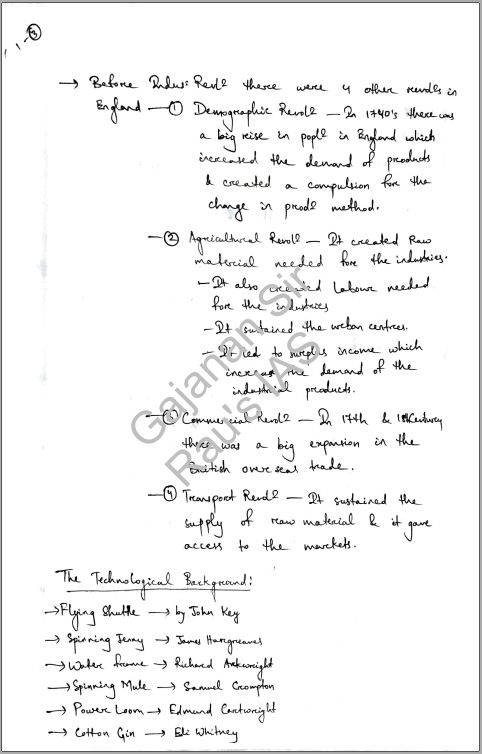 3
→ Before Indus: Revl² there were 4 other revol²s in
England — ① Demographic Revl² — In 1740's there was
a big rise in popl² in England which
increased the demand of products
& created a compulsion for the
change in prod² method.
— ② Agricultural Revl² — It created Raw
material needed for the industries.
— It also created Labour needed
for the industries
— It sustained the urban centres.
— It led to surplus income which
increase the demand of the
industrial products.
— ③ Commercial Revl² — In 17th & 18th Century
there was a big expansion in the
British overseas trade.
— ④ Transport Revl² — It sustained the
supply of raw material & it gave
access to the markets.
The Technological Background:
→ Flying Shuttle → by John Key
→ Spinning Jenny → James Hargreaves
→ Water frame → Richard Arkwright
→ Spinning Mule → Samuel Crompton
→ Power Loom → Edmund Cartwright
→ Cotton Gin → Eli Whitney
Gajanan Sir
Rau's IAS